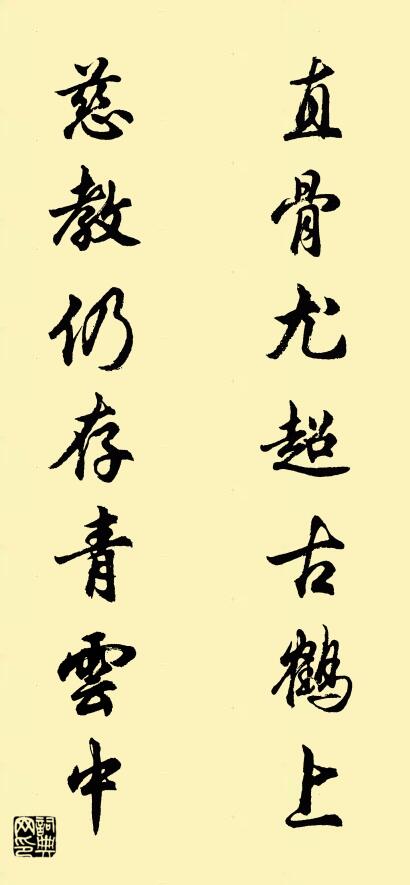 直骨尤超古鶴上
慈教仍存青雲中
詞典网印